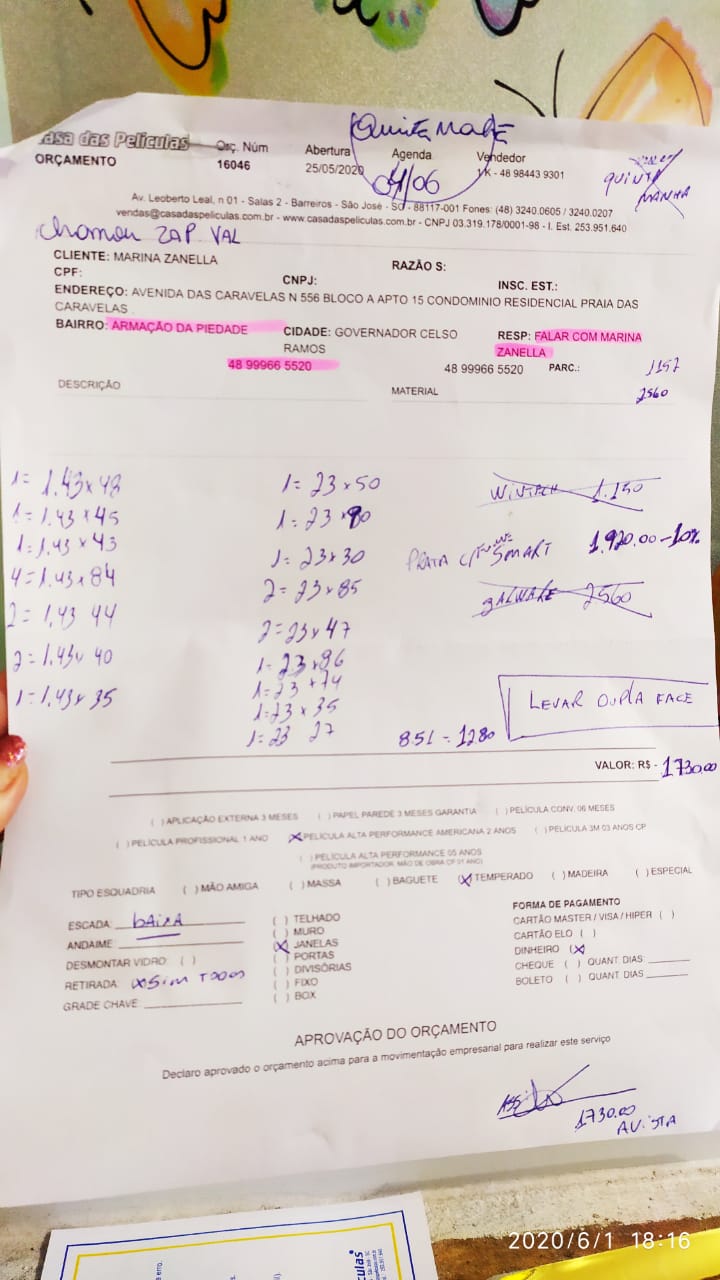 Casa das Películas
ORÇAMENTO
Orç. Núm
16046
Abertura
25/05/2020
Agenda
04/06
Vendedor
48 98443 9301
QUINTA
MANHA
Av. Leoberto Leal, n 01 - Salas 2 - Barreiros - São José - SC - 88117-001 Fones: (48) 3240.0605 / 3240.0207
vendas@casadaspeliculas.com.br - www.casadaspeliculas.com.br - CNPJ 03.319.178/0001-98 - I. Est. 253.951.640
chamou ZAP VAL
CLIENTE: MARINA ZANELLA
RAZÃO S:
CPF:
CNPJ:
INSC. EST.:
ENDEREÇO: AVENIDA DAS CARAVELAS N 556 BLOCO A APTO 15 CONDOMINIO RESIDENCIAL PRAIA DAS
CARAVELAS .
BAIRRO: ARMAÇÃO DA PIEDADE
CIDADE: GOVERNADOR CELSO
RAMOS
RESP: FALAR COM MARINA
ZANELLA
48 99966 5520
48 99966 5520
PARC.:
1157
2560
DESCRIÇÃO
MATERIAL
1= 1.43x48
1= 1.43x45
1= 1.43x43
4= 1.43x84
2= 1.43 44
2= 1.43x 40
1= 1.43x 35
1= 23x50
1= 23x90
1= 23x30
2= 23x85
2= 23x47
1- 23x86
1= 23x74
1= 23x35
1= 23 27
1.150
PRATA SMART 1.920.00-10%
2560
LEVAR DUPLA FACE
8.51 = 1280
VALOR: R$ - 1730.00
( ) APLICAÇÃO EXTERNA 3 MESES ( ) PAPEL PAREDE 3 MESES GARANTIA ( ) PELÍCULA CONV. 06 MESES
( ) PELÍCULA PROFISSIONAL 1 ANO (X) PELÍCULA ALTA PERFORMANCE AMERICANA 2 ANOS ( ) PELÍCULA 3M 03 ANOS CP
( ) PELÍCULA ALTA PERFORMANCE 05 ANOS
(PRODUTO IMPORTADOR. MÃO DE OBRA CP 01 ANO)
TIPO ESQUADRIA ( ) MÃO AMIGA ( ) MASSA ( ) BAGUETE (X) TEMPERADO ( ) MADEIRA ( ) ESPECIAL
ESCADA: bAixA
ANDAIME:
DESMONTAR VIDRO: ( )
RETIRADA: Sim TODOS
GRADE CHAVE:
( ) TELHADO
( ) MURO
(X) JANELAS
( ) PORTAS
( ) DIVISÓRIAS
( ) FIXO
( ) BOX
FORMA DE PAGAMENTO
CARTÃO MASTER / VISA / HIPER ( )
CARTÃO ELO ( )
DINHEIRO (X)
CHEQUE ( ) QUANT DIAS:
BOLETO ( ) QUANT DIAS
APROVAÇÃO DO ORÇAMENTO
Declaro aprovado o orçamento acima para a movimentação empresarial para realizar este serviço
ASS
1730.00
AVISTA
2020/6/1 18:16